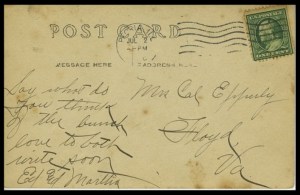 POST CARD
MESSAGE HERE
Say what do
you think
of the bunch
love to both
write soon
Ed Martha
Mrs Cal Epperly
Floyd
Va